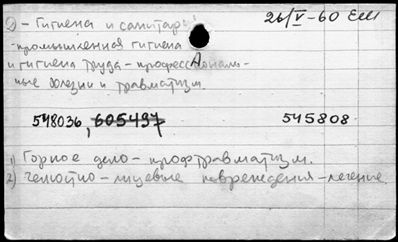 26/V-60 ЕШ
2) - Гигиена и санитария
- промышленная гигиена
и гигиена труда - профессиональ-
ные болезни и травматизм.
548036, 605437 545808
1) Горное дело - профтравматизм.
2) Челюстно - лицевые повреждения - лечение.